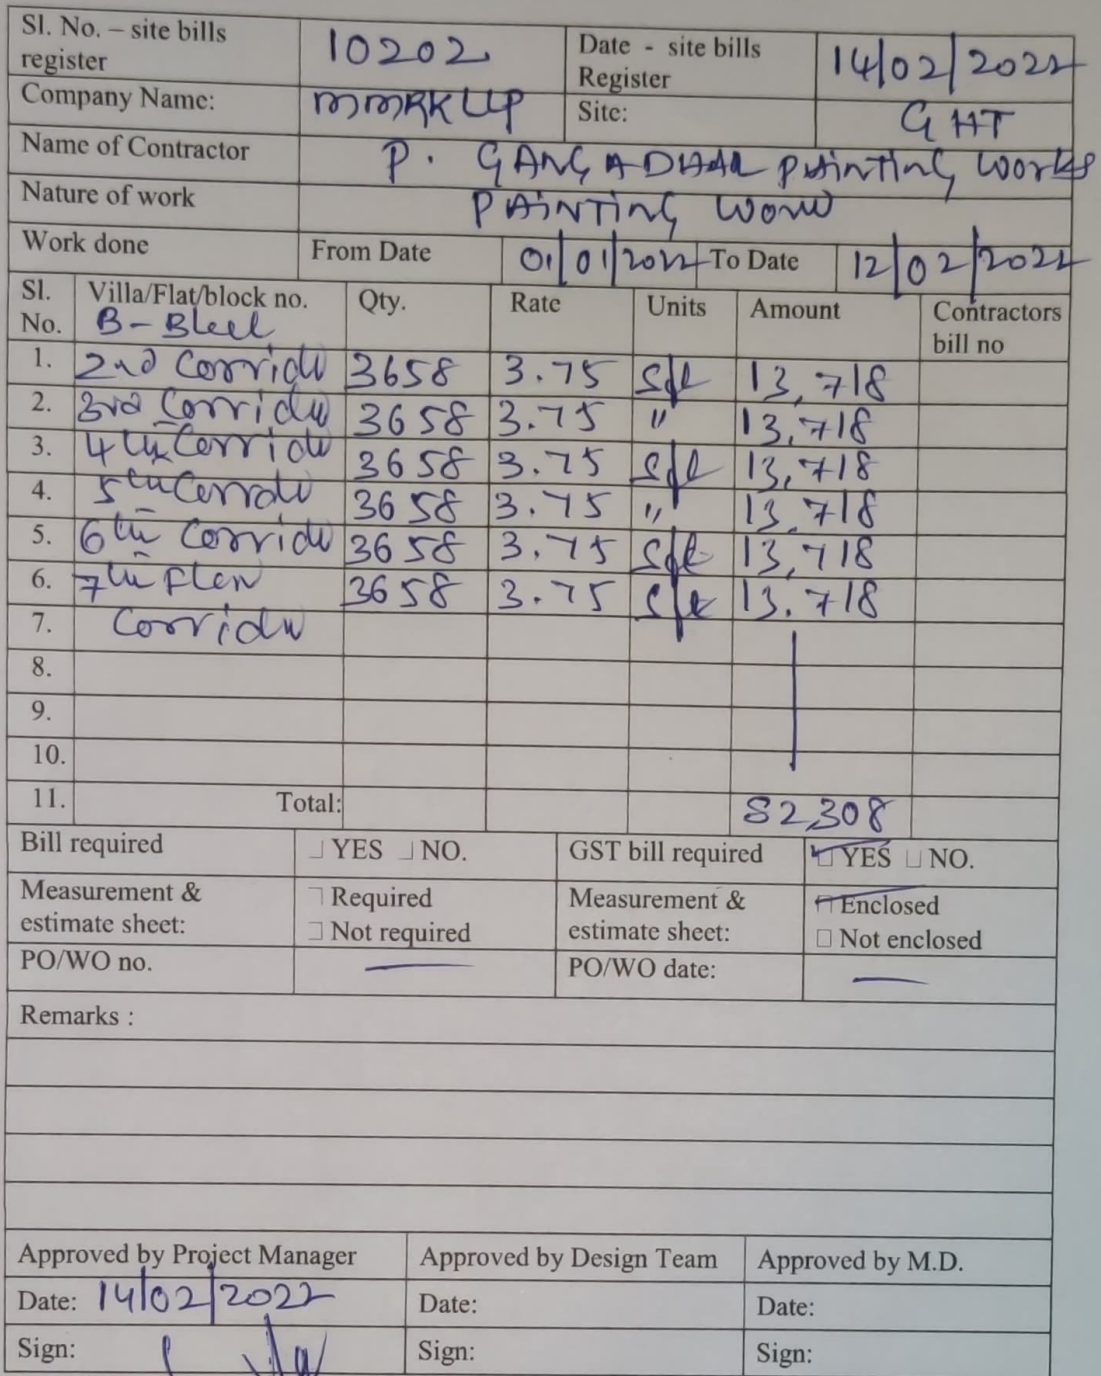 Sl. No. – site bills register 10202 Date - site bills Register 14/02/2022
Company Name: MMRK LLP Site: GHT
Name of Contractor P. GANGADHAR PAINTING WORKS
Nature of work PAINTING WORK
Work done From Date 01/01/2022 To Date 12/02/2022
Sl. No. Villa/Flat/block no. B-Block Qty. Rate Units Amount Contractors bill no
1. 2nd Corridor 3658 3.75 Sft 13,718
2. 3rd Corridor 3658 3.75 " 13,718
3. 4th Corridor 3658 3.75 Sft 13,718
4. 5th Corridor 3658 3.75 " 13,718
5. 6th Corridor 3658 3.75 Sft 13,718
6. 7th Floor 3658 3.75 Sft 13.718
7. Corridor
8.
9.
10.
11. Total: 82,308
Bill required YES NO. GST bill required YES NO.
Measurement & estimate sheet: Required Not required Measurement & estimate sheet: Enclosed Not enclosed
PO/WO no. — PO/WO date: —
Remarks :
Approved by Project Manager Approved by Design Team Approved by M.D.
Date: 14/02/2022 Date: Date:
Sign: Sign: Sign: